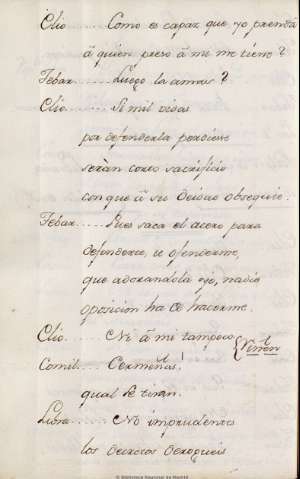 Clio......Como es capaz que yo prenda
à quien preso à mi me tiene?
Febar.....Luego la amas?
Clio......Si mil vidas
por defenderla perdiese
seràn corto sacrificio
con que à su Deidad obsequie.
Febar.....Pues saca el acero para
defenderte, u ofenderme,
que adorandola yo, nadie
oposicion ha de hacerme.
Clio......Ni à mi tampoco {Riñen
Comil.....
qual se tiran.
No imprudentes
los
© Biblioteca Nacional de Madrid